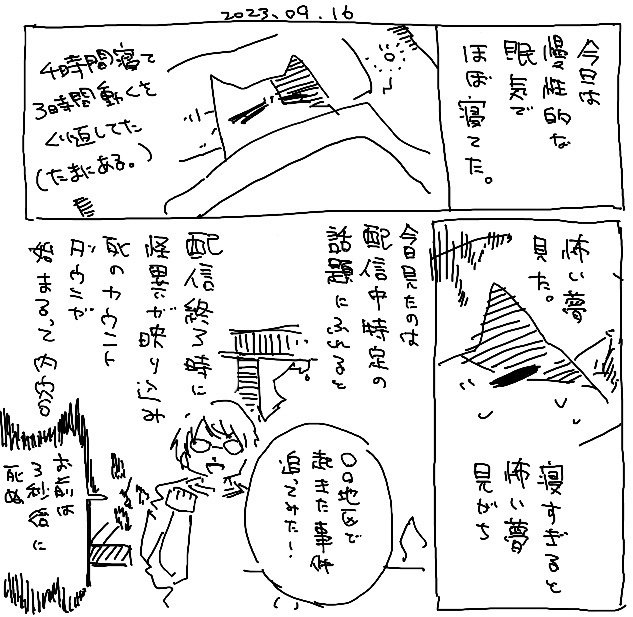 2023.09.16
今日は
慢性的な
眠気で
ほぼ寝てた。
4時間寝て
3時間動くを
くり返してた
(たまにある。)
怖い夢
見た。
寝すぎると
怖い夢
見がち
今日見たのは
配信中特定の
話題にふれると
配信終了時に
怪異が映り込み
死のカウント
ダウンが
始まるって内容の
〇〇地区で
起きた事件
追ってみた!
お前は
3秒後に
死ぬ